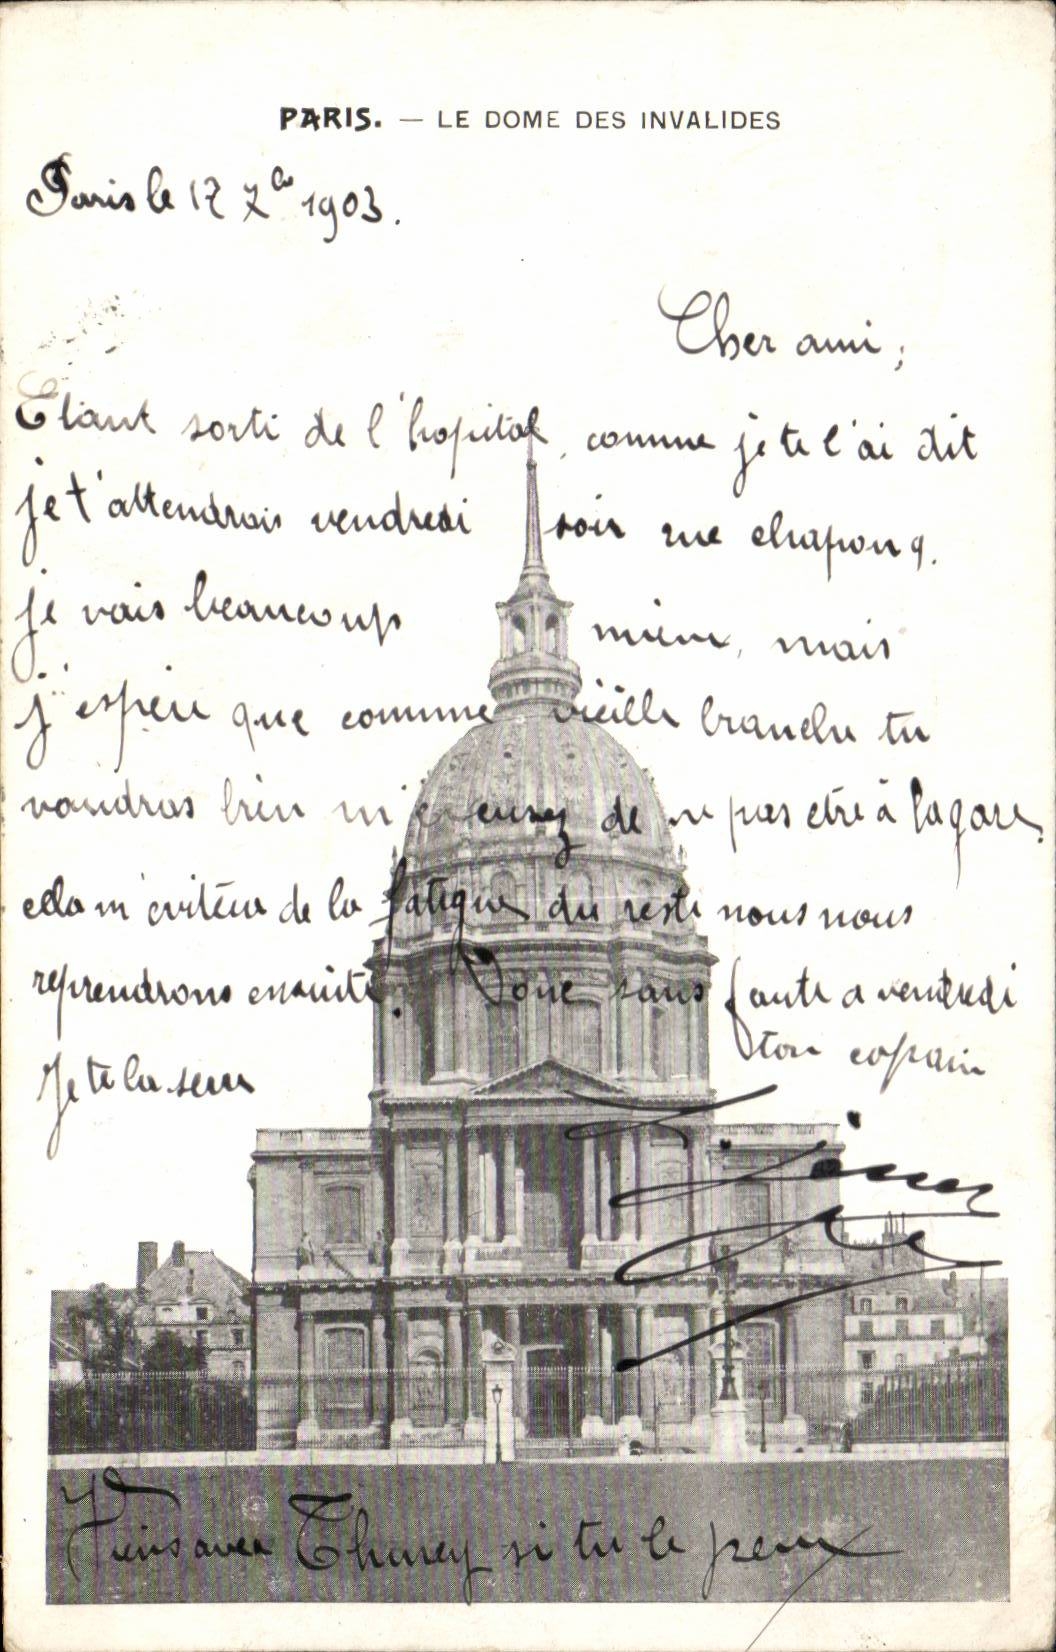 PARIS. — LE DOME DES INVALIDES
Paris le 17 7bre 1903.
Cher ami;
Etant sorti de l'hopital, comme je te l'ai dit
je t'attendrais vendredi soir rue chapon 9.
je vais beaucoup mieux, mais
j'espere que comme vieille branche tu
voudras bien m'excusez de ne pas etre à la gare.
cela m'evitera de la fatigue du reste nous nous
reprendrons ensuite. Donc sans faute a vendredi
ton copain
Je te la serre
Viens avec Thurey si tu le peux